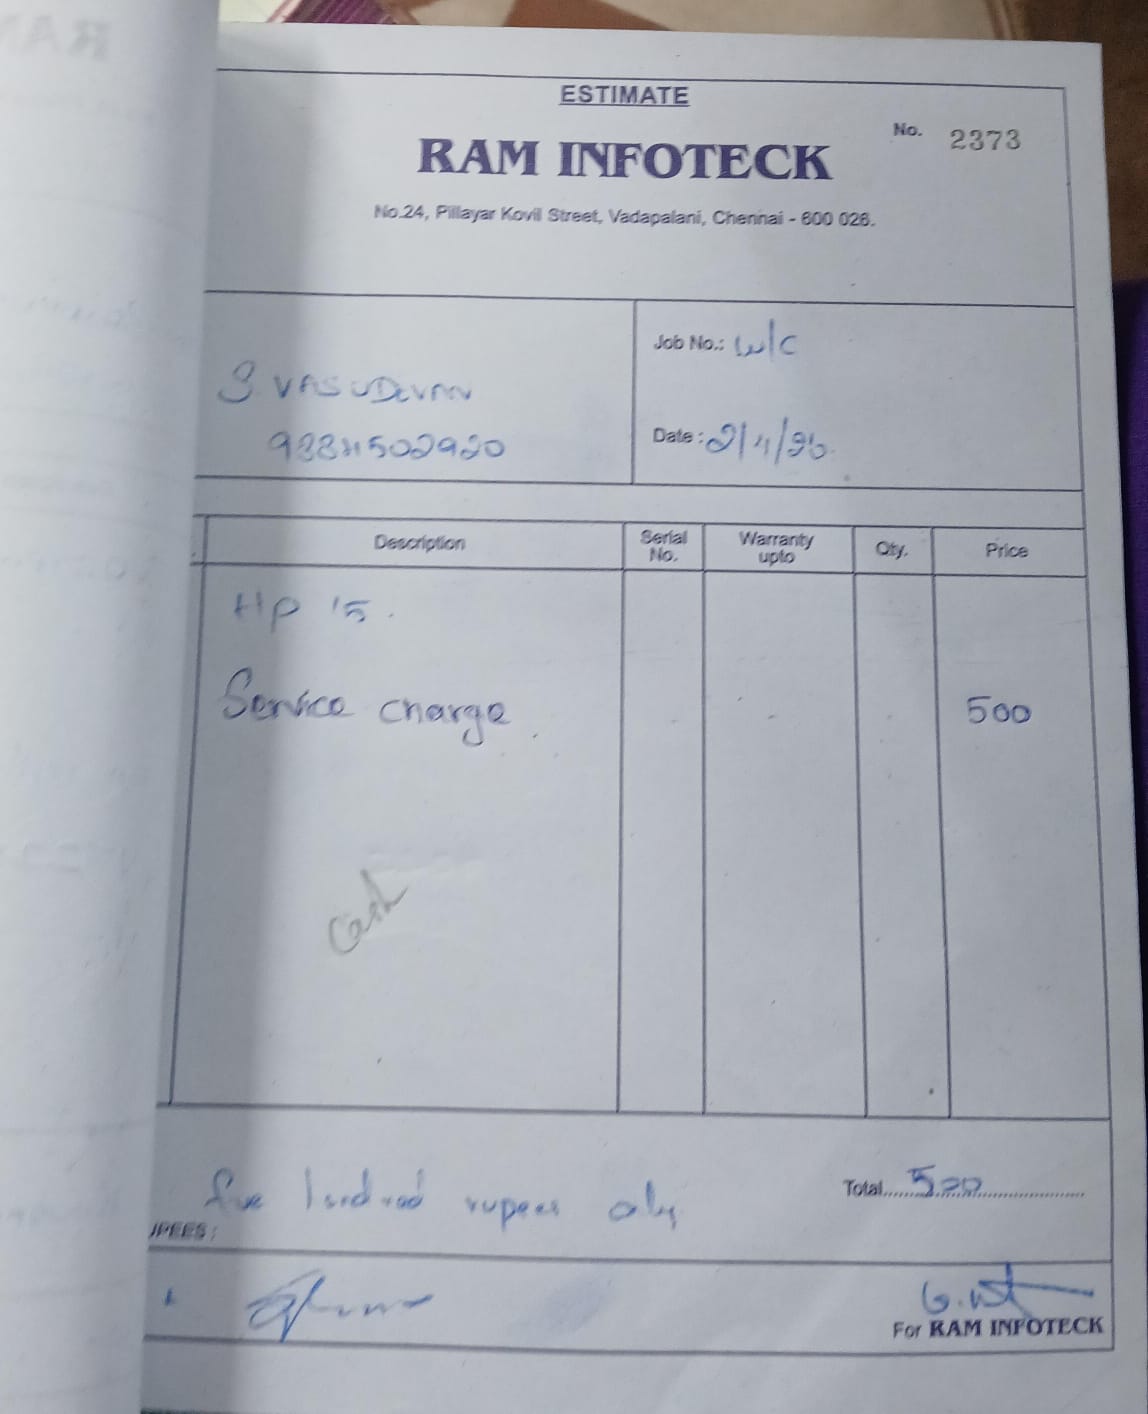 ESTIMATE
No. 2373
RAM INFOTECK
No.24, Pillayar Kovil Street, Vadapalani, Chennai - 600 026.
S. VASUDEVAN
Job No.: w/c
Date :
Description Serial No. Warranty upto Qty. Price
HP 15.
Service charge 500
Cash
five hundred rupees only
Total 500
UPEES :
For RAM INFOTECK